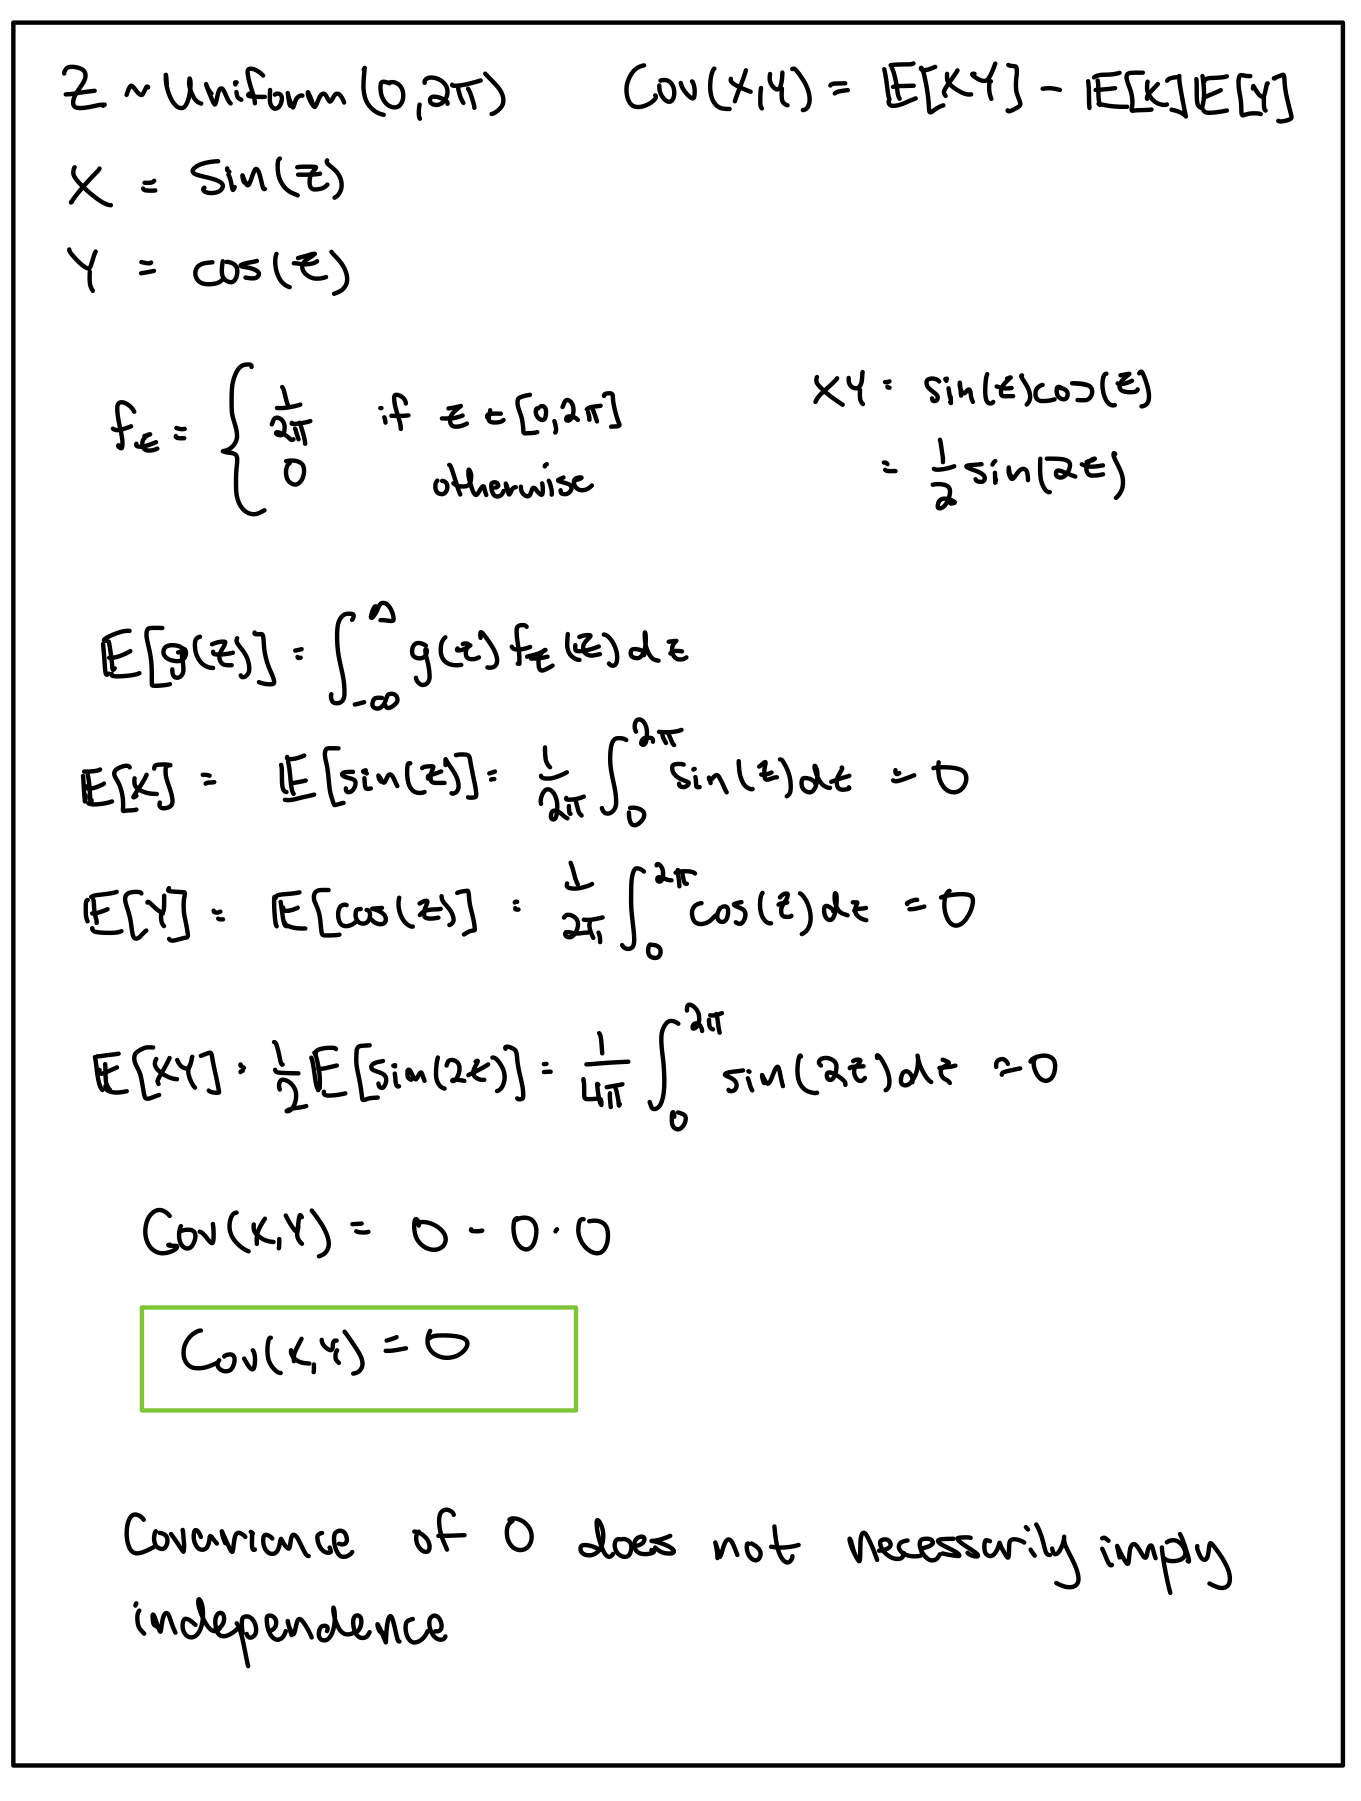 Z ~ Uniform (0,2π)    Cov(X,Y) = 𝔼[XY] - 𝔼[X]𝔼[Y]
X = Sin(Z)
Y = cos(Z)
f_Z = { 1/2π if z ∈ [0,2π]
0 otherwise
XY = sin(z)cos(z)
= 1/2 sin(2z)
𝔼[g(z)] = ∫_{-∞}^{∞} g(z) f_Z(z) dz
𝔼[X] = 𝔼[sin(z)] = 1/2π ∫_0^{2π} sin(z)dz = 0
𝔼[Y] = 𝔼[cos(z)] = 1/2π ∫_0^{2π} cos(z)dz = 0
𝔼[XY] = 1/2 𝔼[sin(2z)] = 1/4π ∫_0^{2π} sin(2z)dz = 0
Cov(X,Y) = 0 - 0 · 0
Cov(X,Y) = 0
Covariance of 0 does not necessarily imply
independence